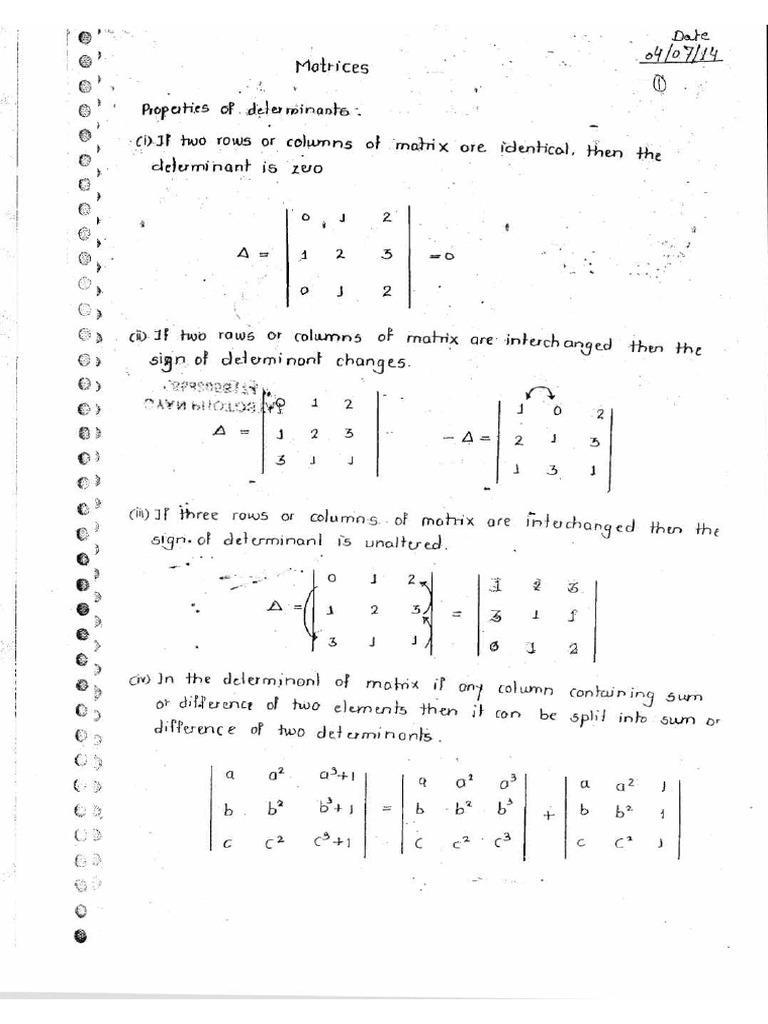 Date
04/07/14
①
Matrices
Properties of determinants:
(i) If two rows or columns of matrix are identical, then the
determinant is zero
0 1 2
Δ = 1 2 3 = 0
0 1 2
(ii) If two rows or columns of matrix are interchanged then the
sign of determinant changes.
0 1 2 1 0 2
Δ = 1 2 3 -Δ = 2 1 3
3 1 1 1 3 1
(iii) If three rows or columns of matrix are interchanged then the
sign of determinant is unaltered.
0 1 2 1 2 3
Δ = 1 2 3 = 3 1 1
3 1 1 0 1 2
(iv) In the determinant of matrix if any column containing sum
or difference of two elements then it can be split into sum or
difference of two determinants.
a a² a³+1 a a² a³ a a² 1
b b² b³+1 = b b² b³ + b b² 1
c c² c³+1 c c² c³ c c² 1